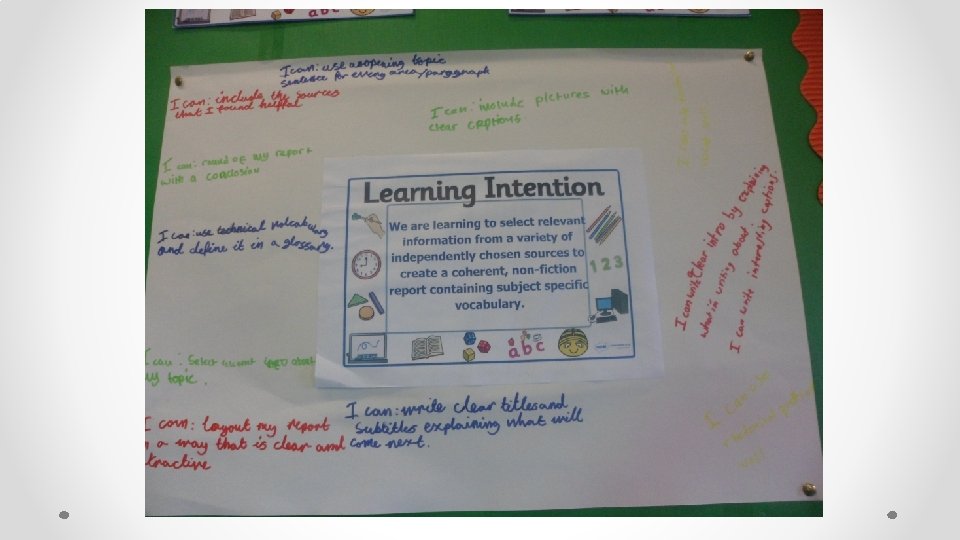 I can: use a opening topic
sentence for every area/paragraph
I can: include the sources
that I found helpful
I can: include pictures with
clear captions
I can: round of my report
with a conclosion
I can: use technical
and define it in a glossary.
Learning Intention
We are learning to select relevant
information from a variety of
independently chosen sources to
create a coherent, non-fiction
report containing subject specific
vocabulary.
1 2 3
a b c
I can write clear intro by explaining
what im writing about.
I can write interesting captions.
I can: Select info about
my topic.
I can: layout my report
a way that is clear and
tractive
I can: write clear titles and
Subtitles explaining what will
come next.
I can